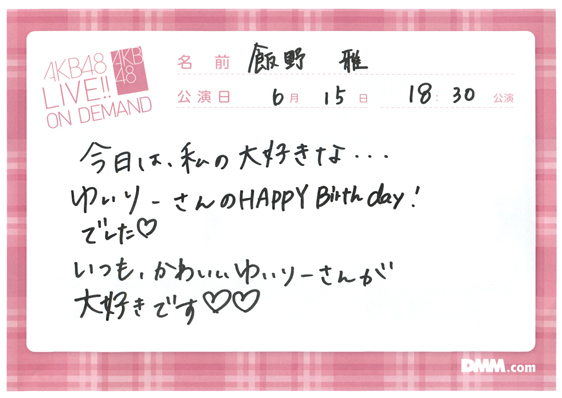 AKB48
LIVE!!
ON DEMAND
AKB
48
名前 飯野 雅
公演日 6月 15日 18:30 公演
今日は、私の大好きな・・・
ゆいりーさんのHAPPY Birthday!
でした♡
いつも、かわいいゆいりーさんが
大好きです♡♡
DMM.com